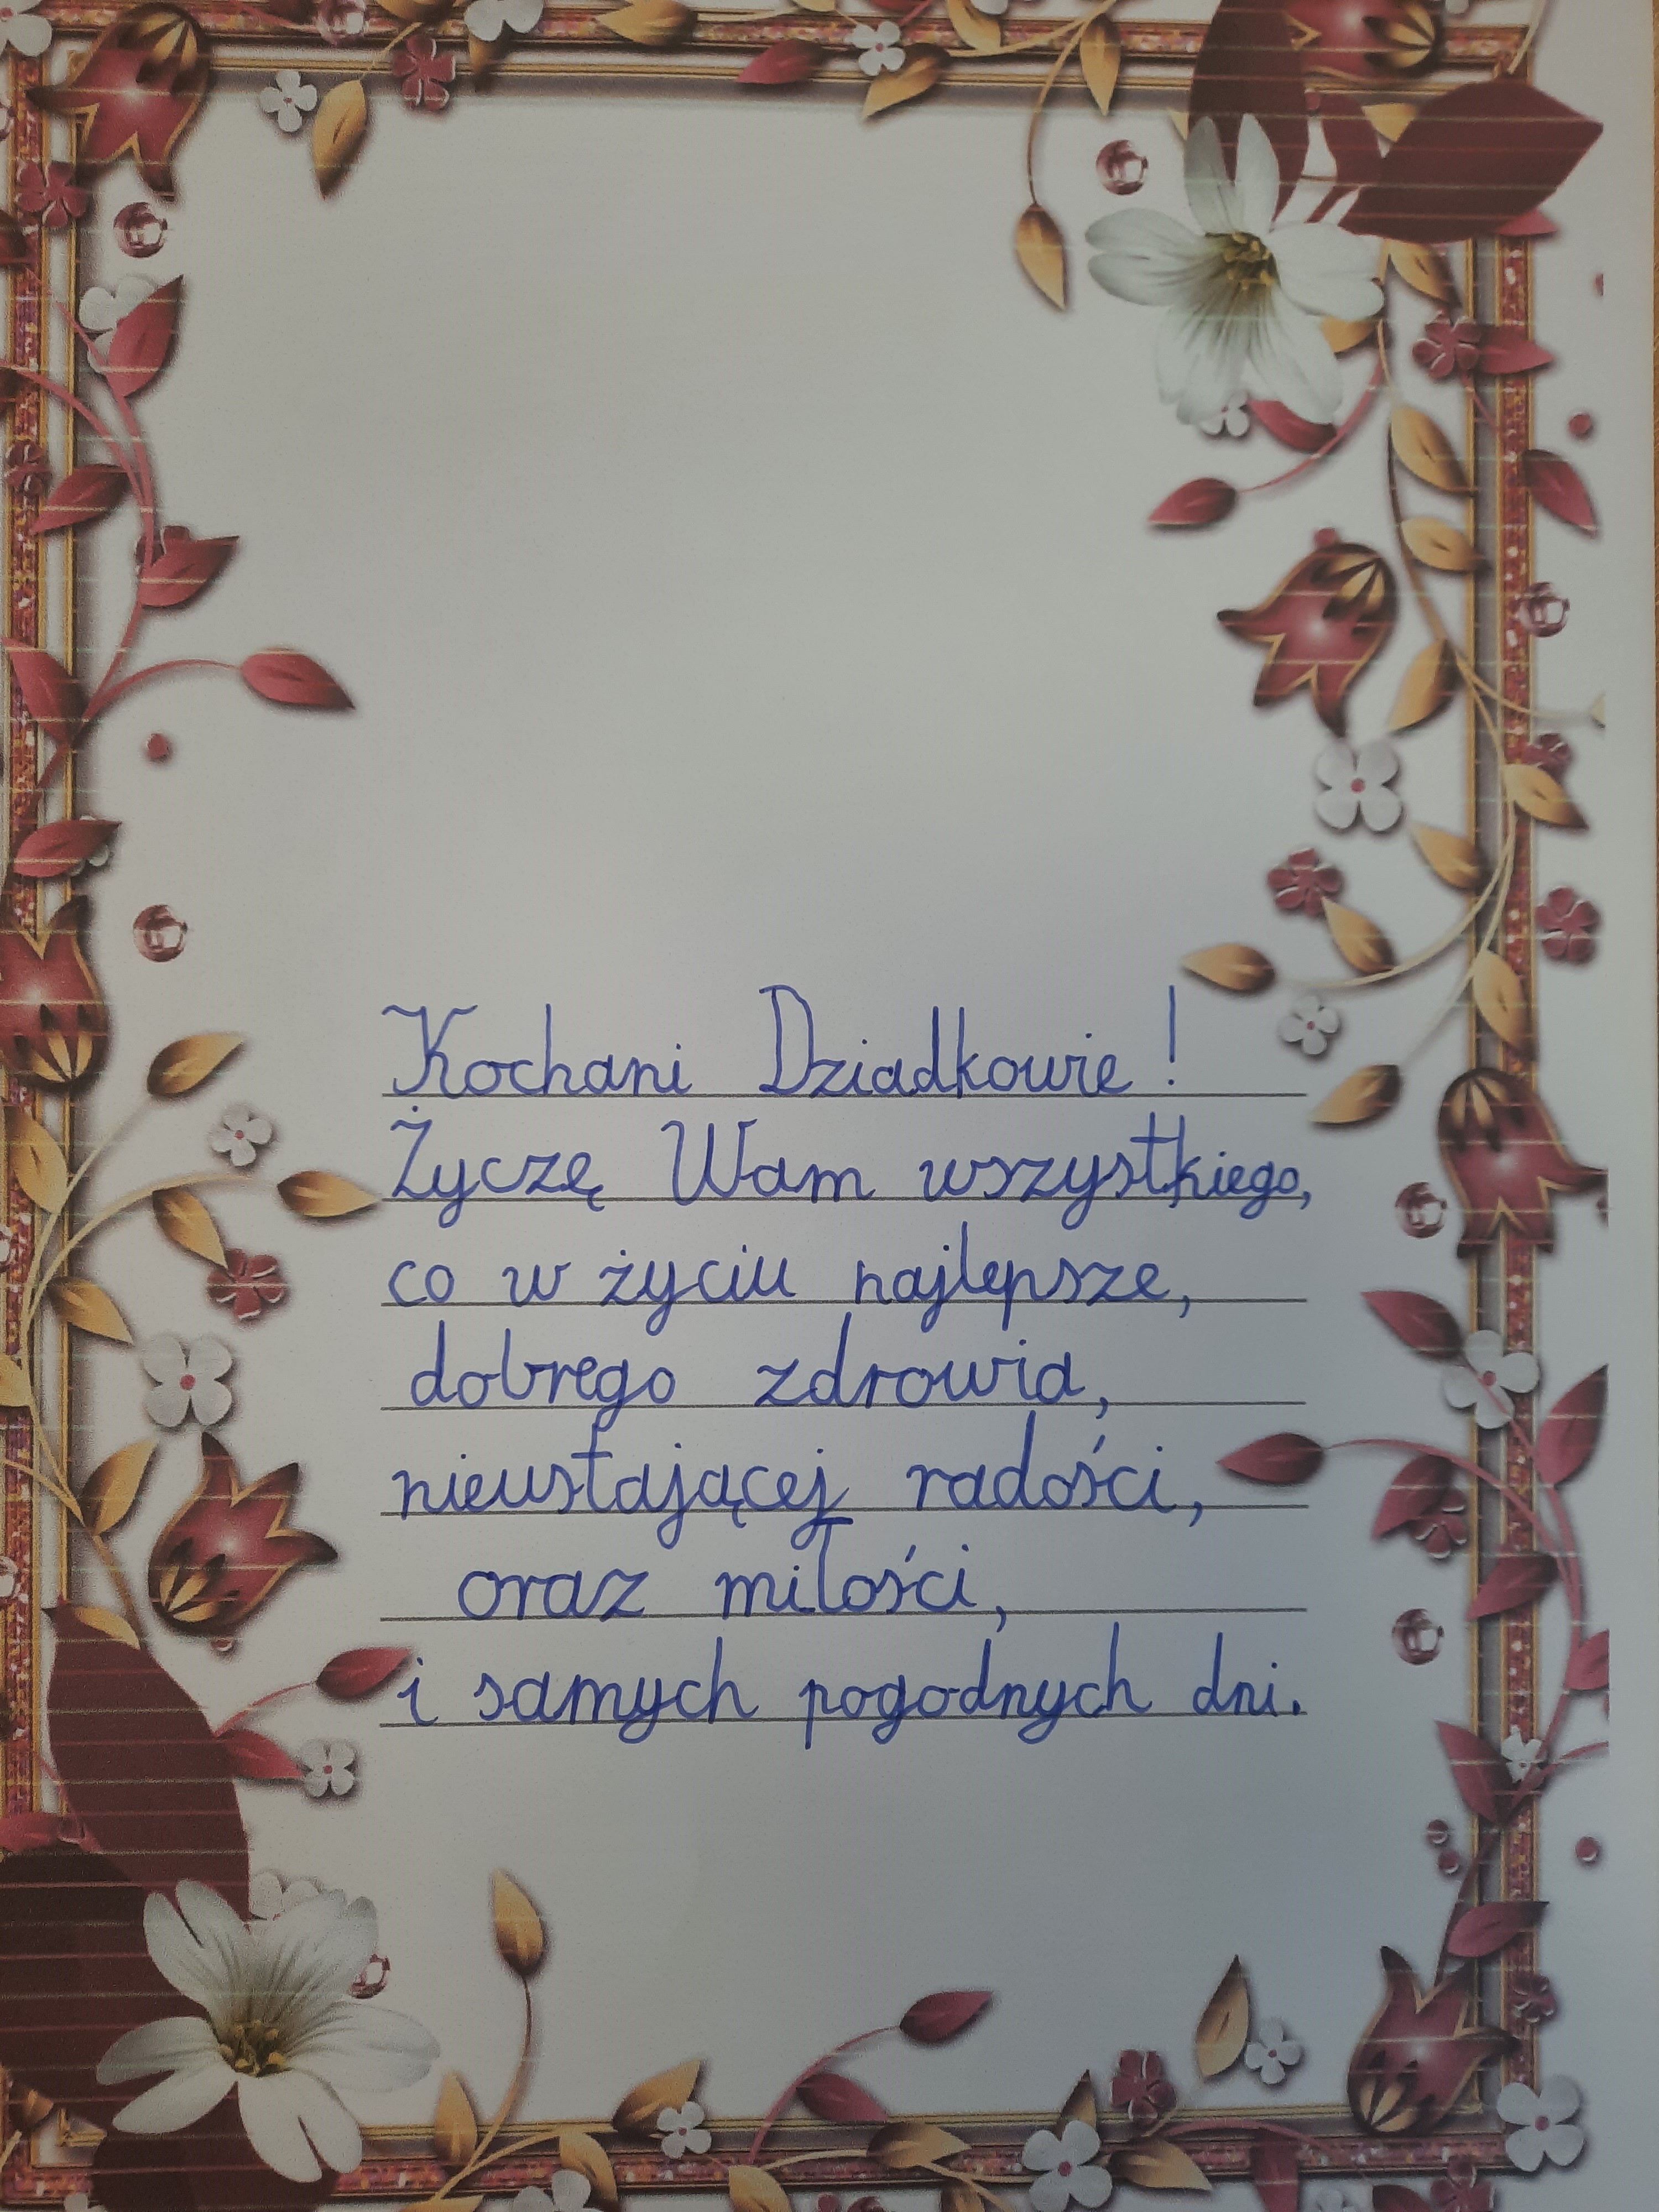 Kochani Dziadkowie!
Życzę Wam wszystkiego,
co w życiu najlepsze,
dobrego zdrowia,
nieustającej radości,
oraz miłości,
i samych pogodnych dni.